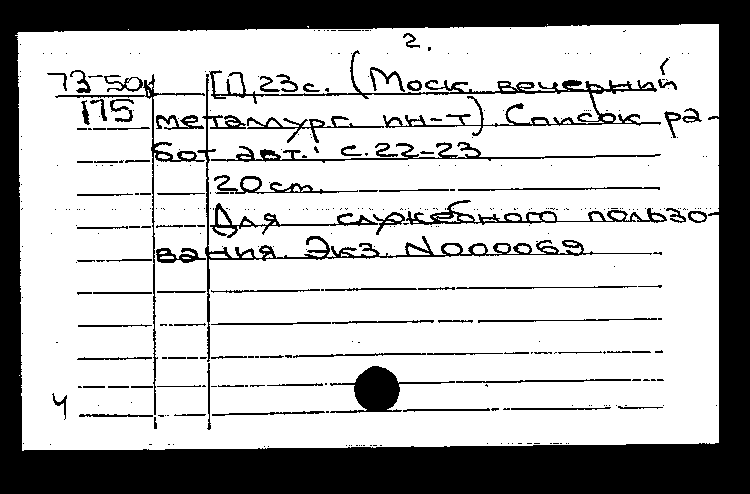 2.
73-50к [1], 23с. (Моск. вечерний
175 металлург. ин-т). Список ра-
бот авт.: с. 22-23
20 cm.
Для служебного пользо-
вания. Экз. N000069.
4